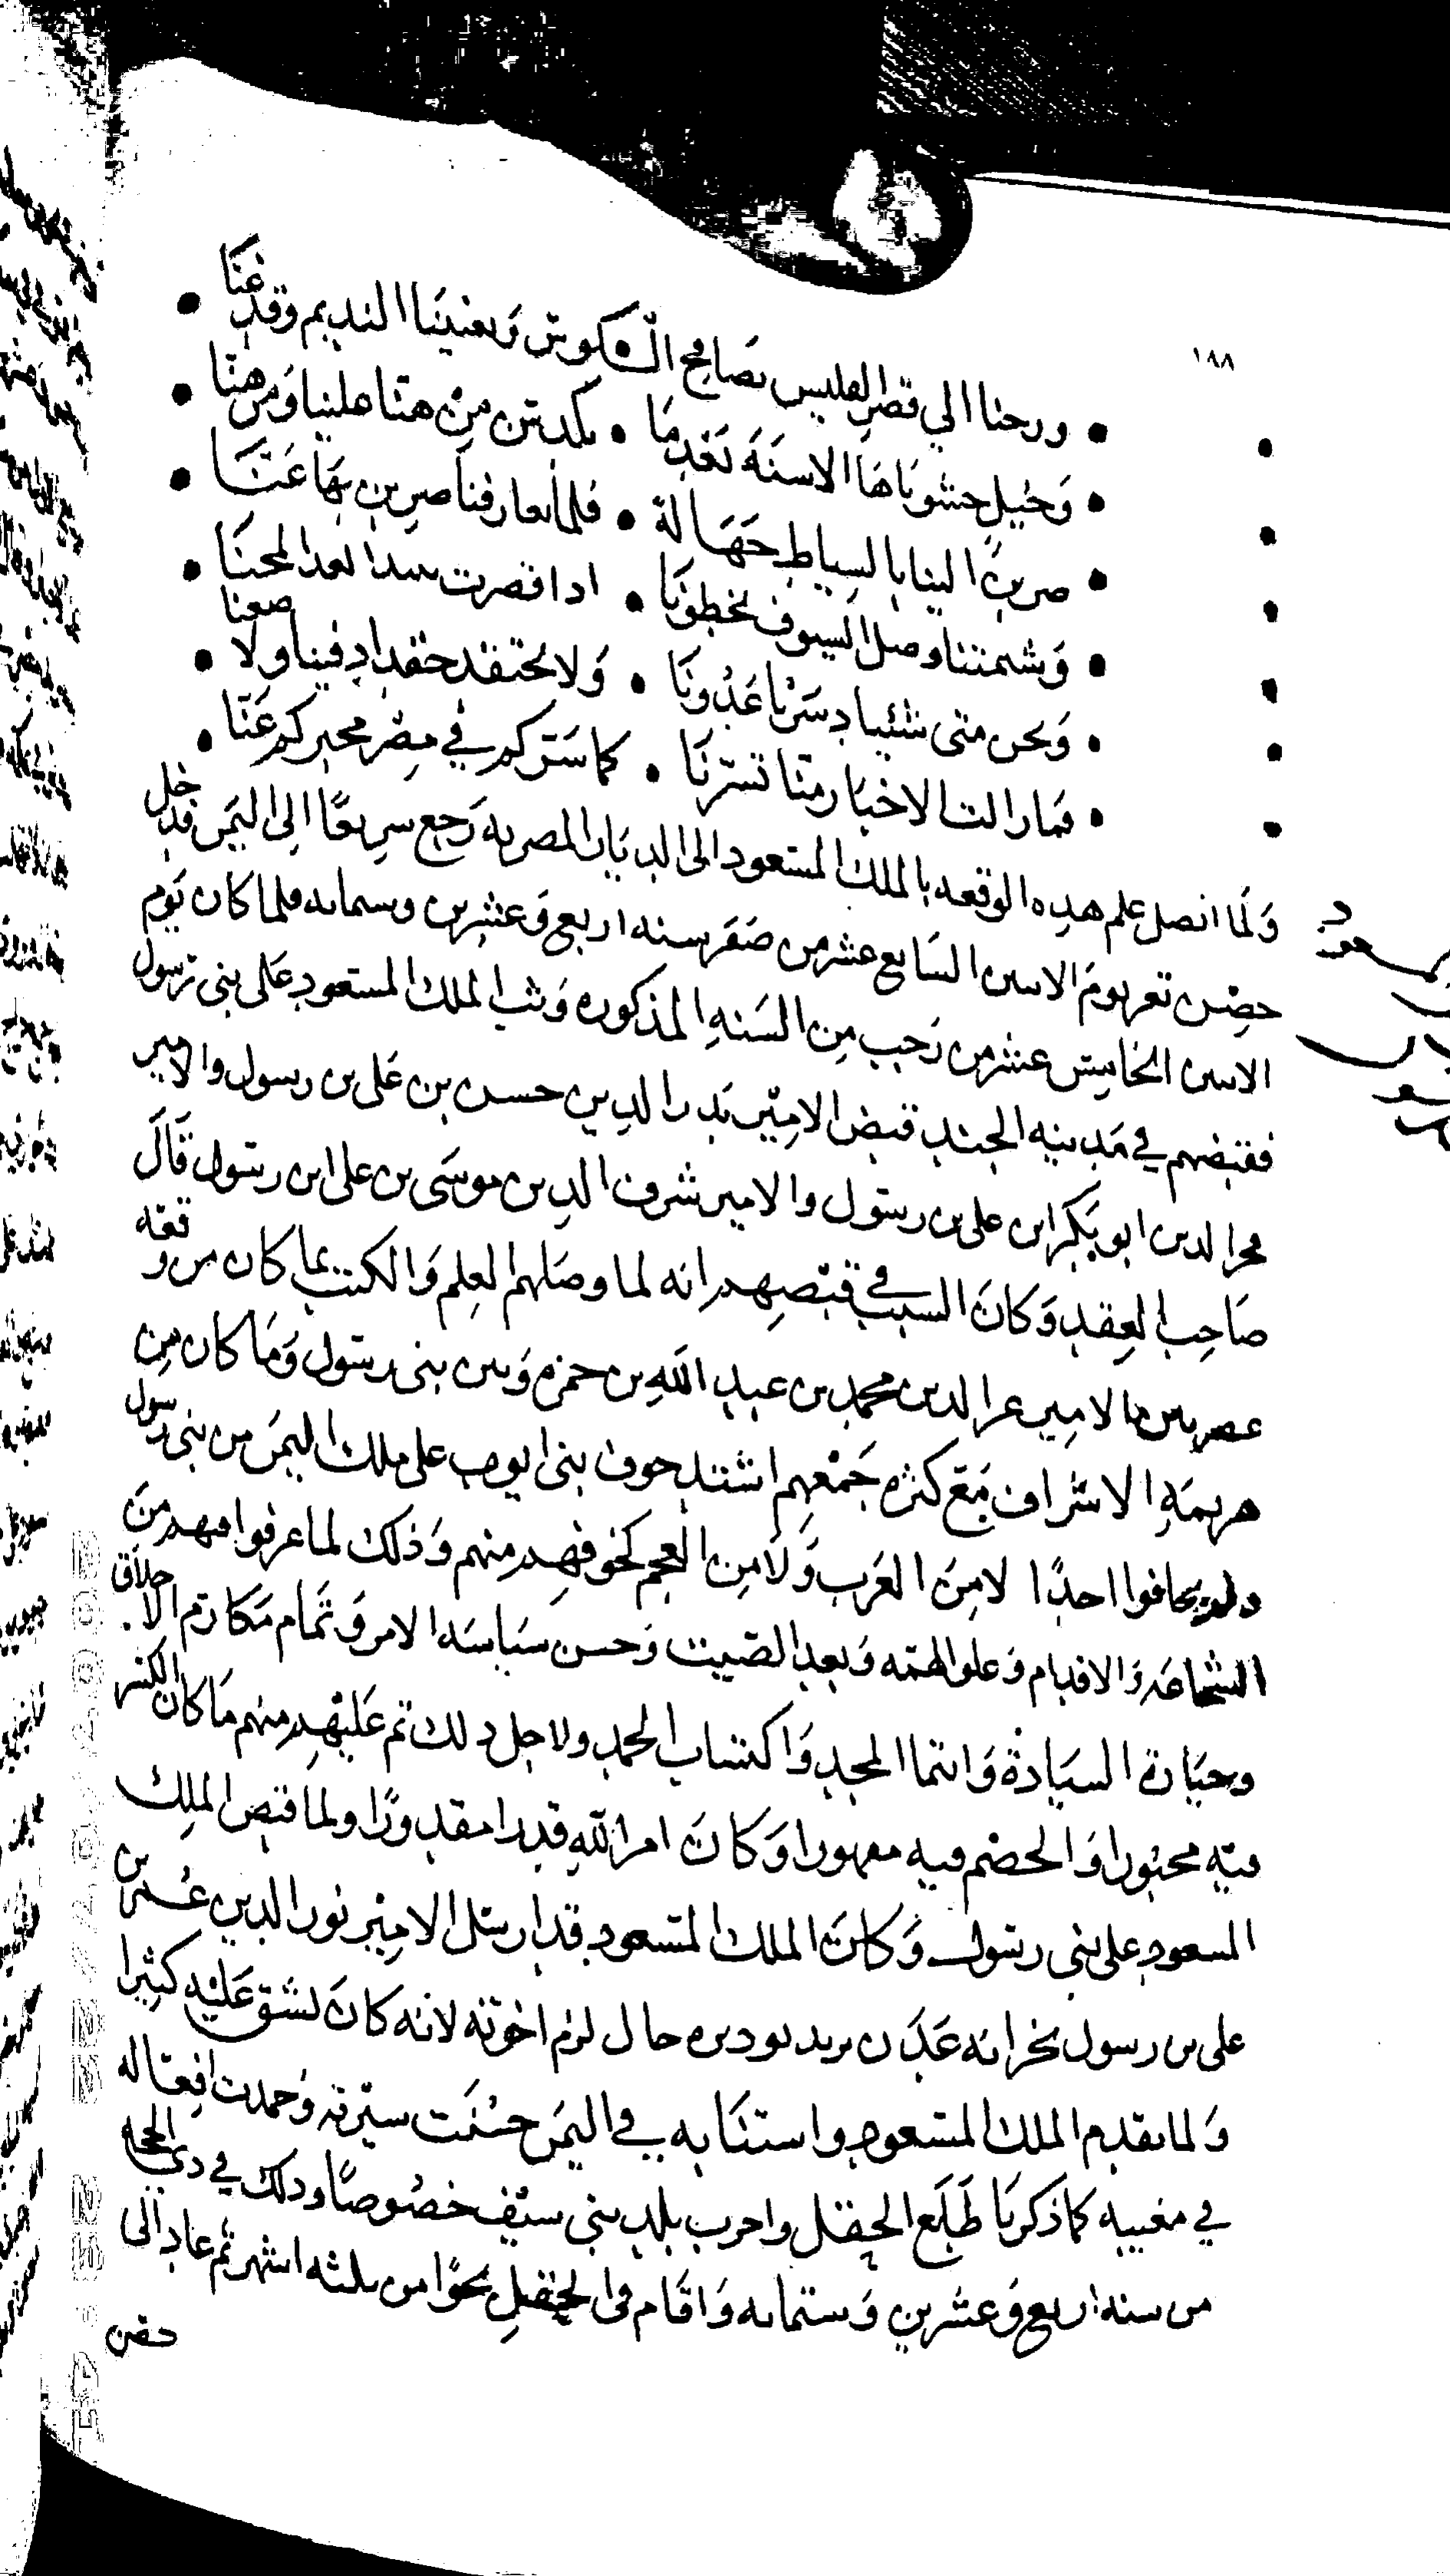 ١٨٨
ورحنا الي قصر القليس نصافح الكوس ويغنينا النديم وقد غنا
وخيل حشوناها الاسنة بعدما • تكدسن من هنا علينا ومن هنا
ضربن الينا بالسياط جهالة • فلما تعارفنا ضربن بها عنا
وشيمتنا وصل السيوف بخطونا • اذا قصرت
ونحن متى شئنا عدونا • ولا نحتقد حقدا فينا ولا صعنا
فما زالت الاخبار منا تسرنا • كما ستركم في مصر مخبركم عنا
ولما اتصل علم هذه الوقعه بالملك المسعود الى الديار المصريه رجع سريعا الى اليمن فدخل
حصن تعز يوم الاثنين السابع عشر من صفر سنه اربع وعشرين وستمائه فلما كان يوم
الاثنين الخامس عشر من رجب من السنه المذكوره وثب الملك المسعود على بنى رسول
فقبضهم في مدينه الجند قبض الامير بدر الدين حسن بن على بن رسول والامير
فخر الدين ابو بكر ابن على بن رسول والامير شرف الدين موسى بن على ابن رسول قال
صاحب العقد وكان السبب في قبضهم انه لما وصلهم العلم والكتب بما كان من وقعه
عصر بين الامير عز الدين محمد بن عبد الله بن حمزه وبين بنى رسول وما كان من
هزيمة الاشراف مع كثره جمعهم اشتد خوف بنى ايوب على ملك اليمن من بنى رسول
ولم يخافوا احدا لا من العرب ولا من العجم كخوفهم منهم وذلك لما عرفوا فيهم من
الشجاعه والاقدام وعلو الهمه وبعد الصيت وحسن سياسه الامر وتمام مكارم الاخلاق
وحيازة السيادة وانتما المجد واكتساب الحمد ولاجل ذلك تم عليهم منهم ما كان الكسر
فيه مجبورا والخصم فيه مقهورا وكان امر الله قدرا مقدورا ولما قبض الملك
المسعود على بنى رسول وكان الملك المسعود قد ارسل الامير نور الدين عمر بن
على بن رسول بخزانه عدن يريد حال لزم اخوته لانه كان يشق عليه كثيرا
ولما تقدم الملك المسعود واستنابه في اليمن حسنت سيرته وحمدت افعاله
في مغيبه كما ذكرنا طلع الحقل واخرب بلد بنى سيف خصوصا وذلك في ذي الحجه
من سنه اربع وعشرين وستمائه واقام في الحقل نحوا من ثلثه اشهر ثم عاد الى
حصن